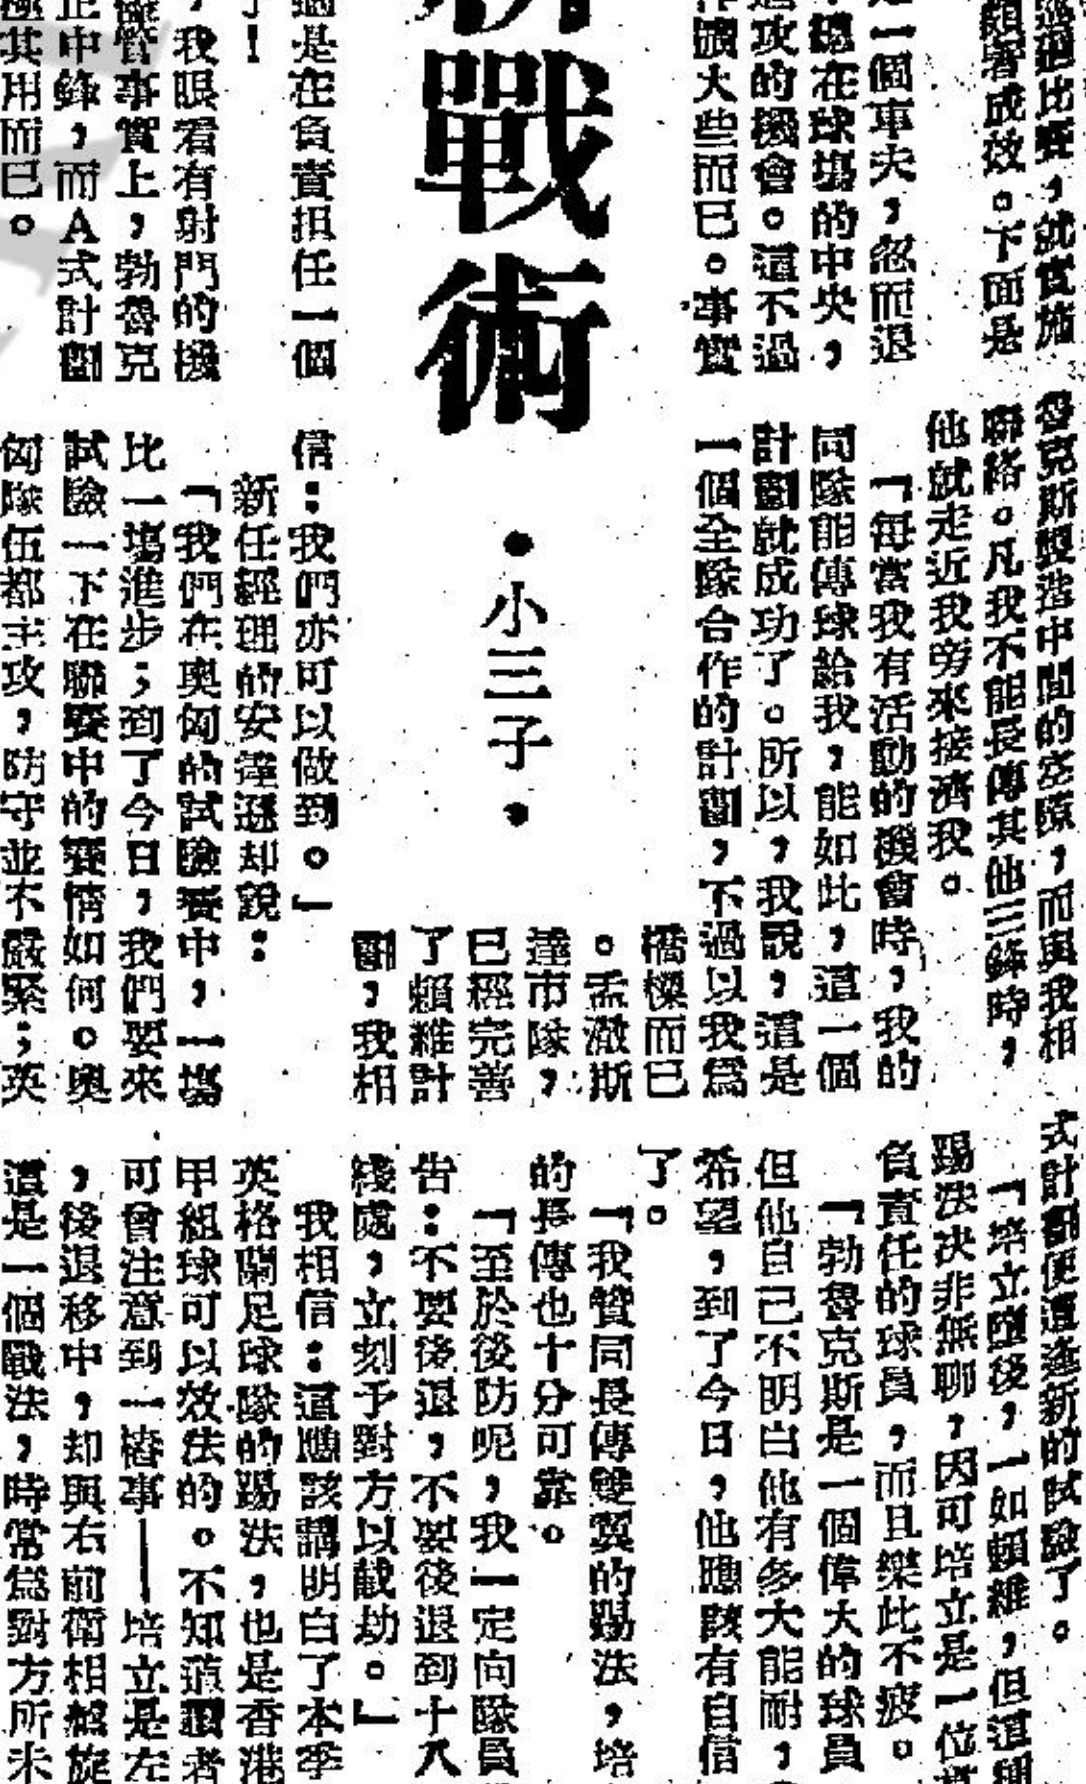 過比賽，就實施
顯著成效。下面是
一個車夫，忽而退
總在球塲的中央，
攻的機會。這不過
大些而已。事實
戰術
•小三子，
過是在負責担任一個
！
，我眼看有射門的機
事實上，勃魯克
正中鋒，而A式計劃
極其用而已。
魯克斯製造中間的空隙，而與我相
聯絡。凡我不能長傳其他三鋒時，
他就走近我旁來接濟我。
「每當我有活動的機會時，我的
同隊能傳球給我，能如此，這一個
計劃就成功了。所以，我說，這是
一個全隊合作的計劃，不過以我爲
橋樑而已
。孟澈斯
達市隊，
已經完善
了賴維計
劃，我相
信：我們亦可以做到。」
新任經理的安達遜却說：
「我們在奧匈的試驗賽中，一塲
比一塲進步；到了今日，我們要來
試驗一下在聯賽中的賽情如何。奧
匈隊伍都主攻，防守並不嚴緊；英
式計劃便遭逢新的試驗了。
「培立墮後，一如賴維，但這種
踢法決非無聊，因可培立是一位
負責任的球員，而且樂此不疲。
「勃魯克斯是一個偉大的球員
但他自己不明白他有多大能耐，
希望，到了今日，他應該有自信
了。
「我贊同長傳雙翼的踢法，培
的長傳也十分可靠。
「至於後防呢，我一定向隊員
告：不要後退，不要後退到十八
綫處，立刻予對方以截劫。」
我相信：這應該講明白了本季
英格蘭足球隊的踢法，也是香港
甲組球可以效法的。不知道讀者
可曾注意到一樁事——培立是左
，後退移中，却與右前衛相盤旋
這是一個戰法，時常爲對方所未